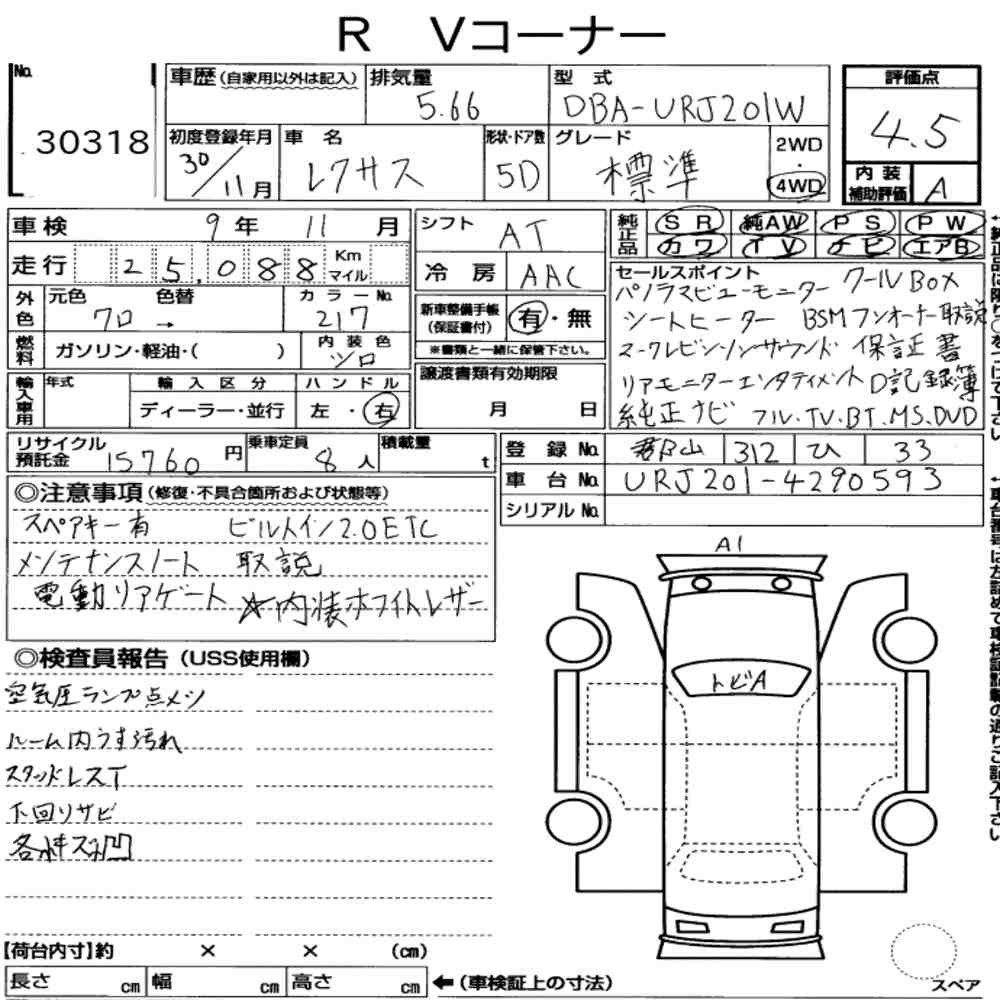 R Vコーナー
No. 30318
車歴(自家用以外は記入)
排気量 5.66
型式 DBA-URJ201W
評価点 4.5
初度登録年月 30/11月
車名 レクサス
形状・ドア数 5D
グレード 標準
2WD・4WD
内装補助評価 A
車検 9年 11月
走行 25,088 Km マイル
外色 元色 クロ → 色替
カラーNo. 217
燃料 ガソリン・軽油・( )
内装色 シロ
輸入車用 年式
輸入区分 ディーラー・並行
ハンドル 左・右
シフト AT
冷房 AAC
新車整備手帳(保証書付) 有・無
※書類と一緒に保管下さい。
譲渡書類有効期限
月 日
純正品 SR 純AW PS PW
カワ TV ナビ エアB
セールスポイント クールBOX
パノラマビューモニター
シートヒーター BSM フンオーナー取説
マークレビンソンサウンド 保証書
リアモニターエンタテイメント D記録簿
純正ナビ フル.TV.BT.MS.DVD
リサイクル預託金 15760円
乗車定員 8人
積載量 t
登録No. 312 ひ 33
車台No. URJ201-4290593
シリアルNo.
◎注意事項(修復・不具合箇所および状態等)
スペアキー有 ビルトイン2.0ETC
メンテナンスノート 取説
電動リアゲート ☆内装ホワイトレザー
◎検査員報告(USS使用欄)
空気圧ランプ点メツ
ルーム内うす汚れ
スタッドレスT
下回りサビ
各小キズ凹
A1
トビA
【荷台内寸】約 × × (cm)
長さ cm 幅 cm 高さ cm ←(車検証上の寸法)
スペア